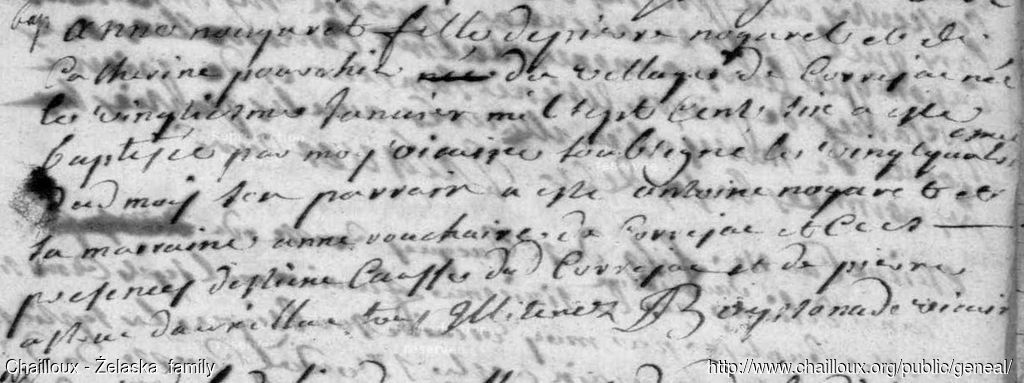 bap
anne nougaret fille de pierre nogaret et de
Catherine du village de Correjac née
le vingtieme Janvier mil sept cents six a este
baptisée par moy vicaire soubsigné le vingt quatrieme
dud mois son parrain a esté antoine nogaret et
sa marraine anne vouchaire de Correjac et ce es
presences destiene Causse dud Correjac et de pierre
tous Illiterez vicaire
Chailloux - Żelaska family
http://www.chailloux.org/public/geneal/